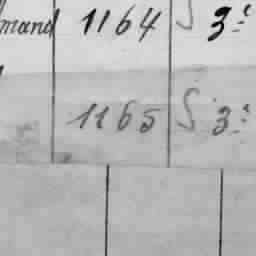 mand 1164 S 3e
1165 S 3e